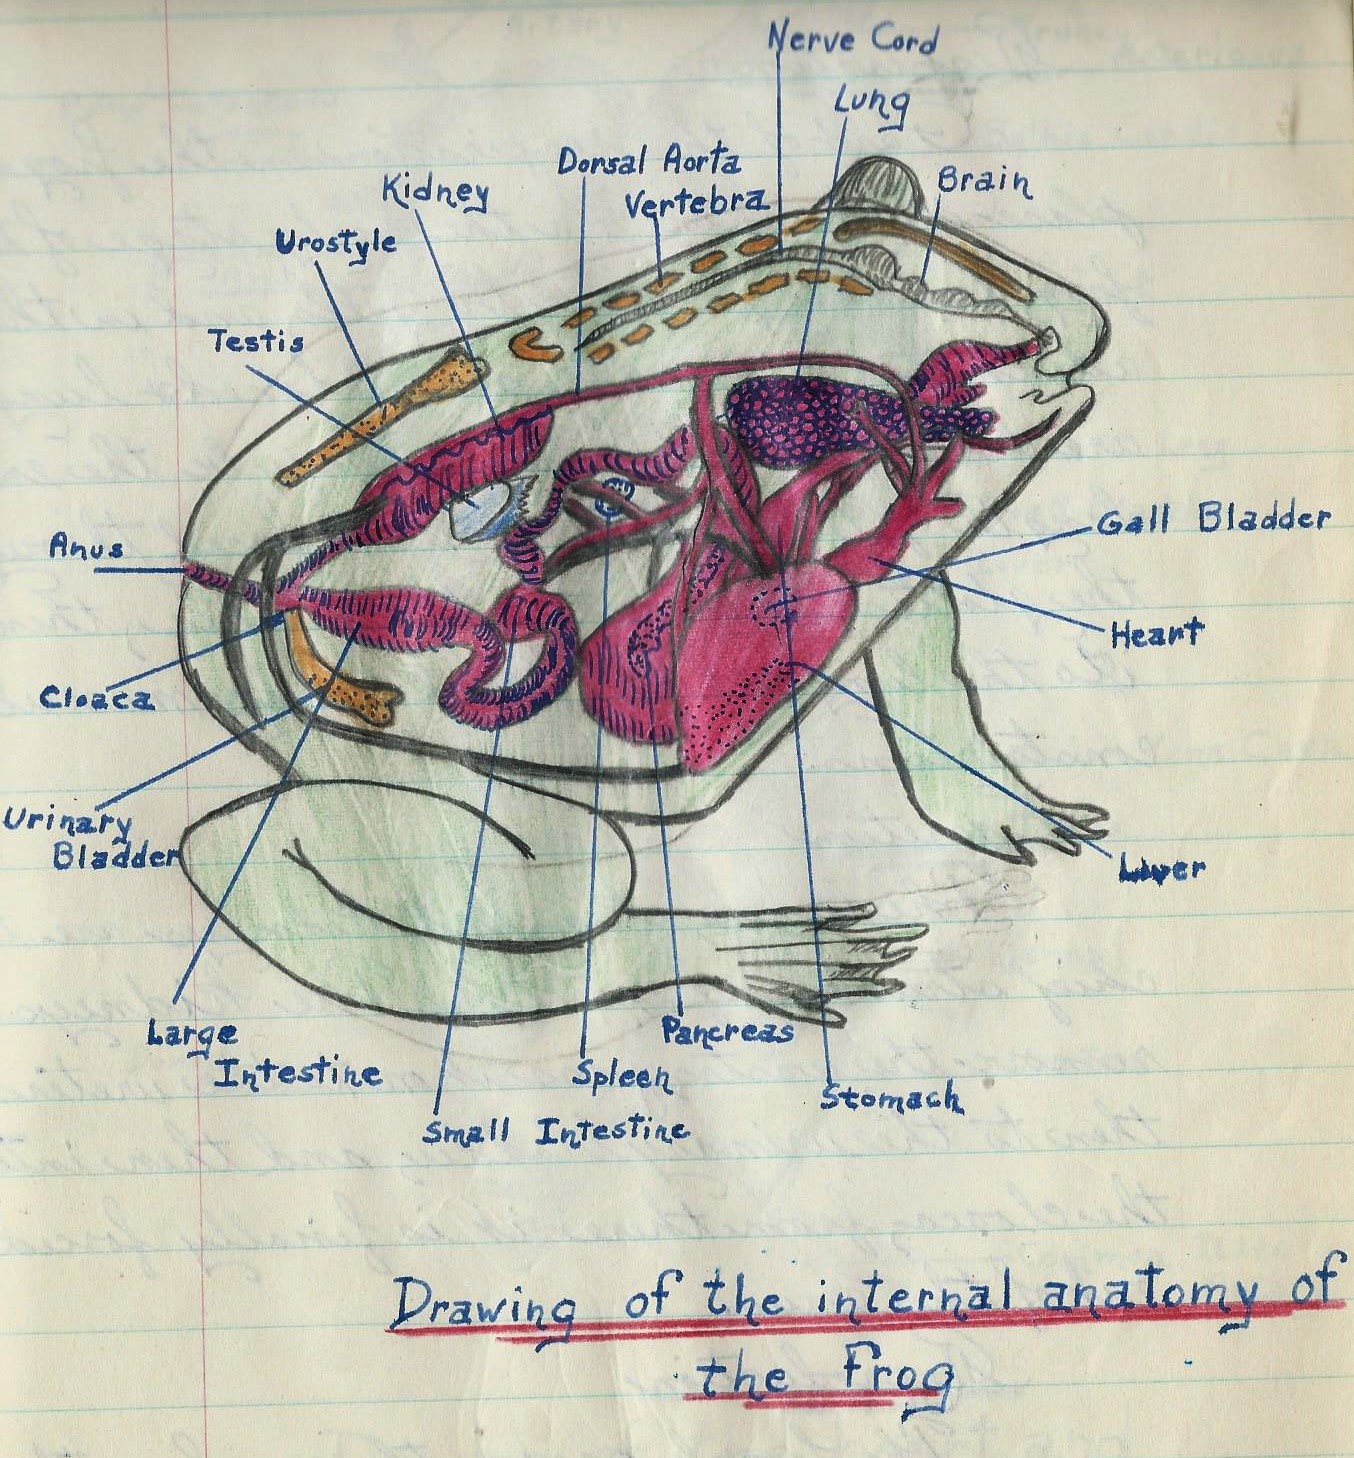 Nerve Cord
Lung
Dorsal Aorta
Vertebra
Brain
Kidney
Urostyle
Testis
Anus
Gall Bladder
Heart
Cloaca
Urinary
Bladder
Liver
Large
Intestine
Pancreas
Spleen
Stomach
Small Intestine
Drawing of the internal anatomy of
the Frog